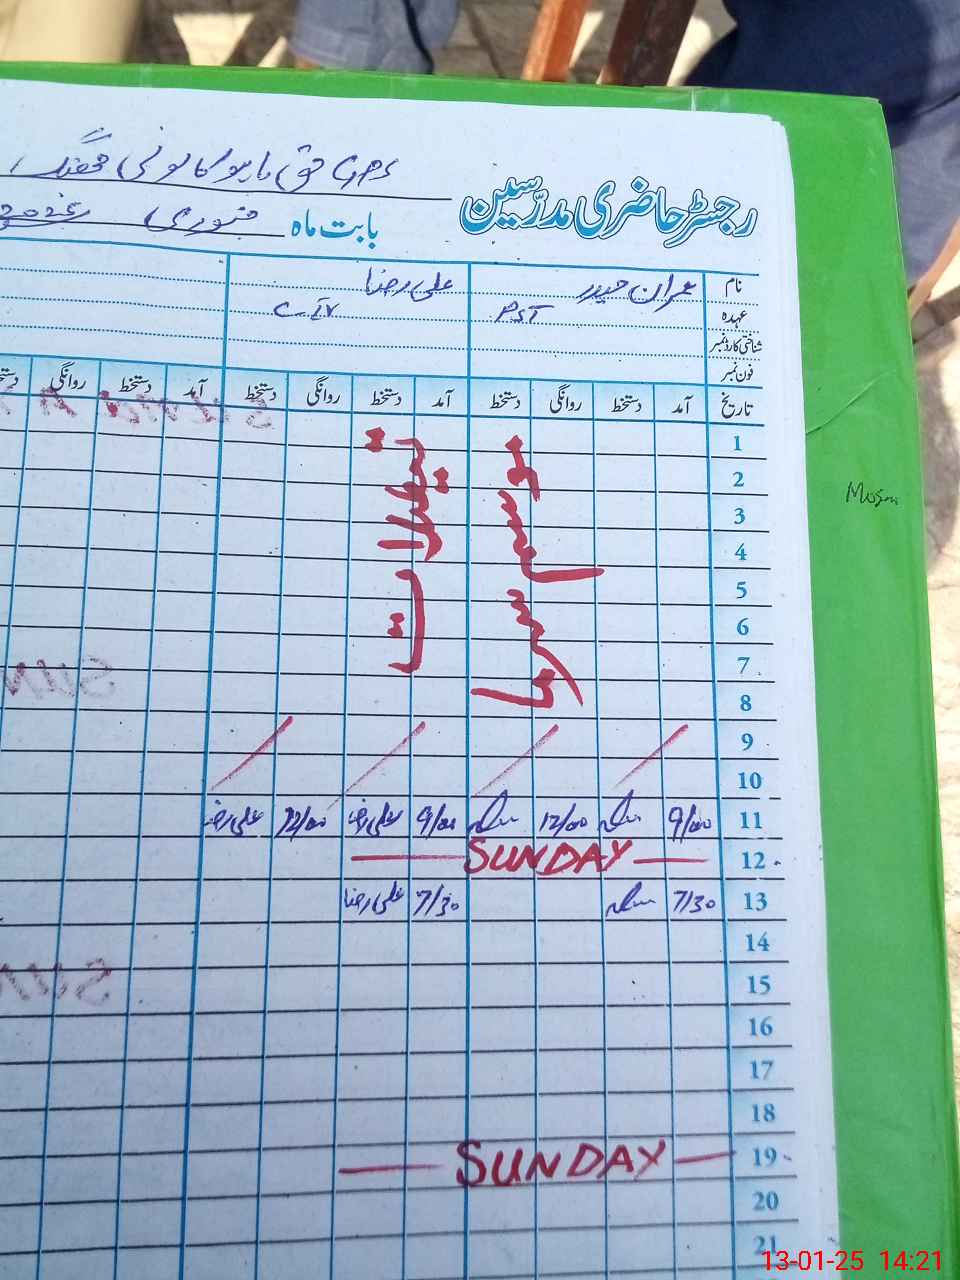 GPS حق باہو کالونی
رجسٹر حاضری مدرّسین
بابت ماہ جنوری
نام عمران حیدر علی رضا
عہدہ PST
شناختی کارڈ نمبر
فون نمبر
تاریخ آمد دستخط روانگی دستخط آمد دستخط روانگی دستخط آمد دستخط روانگی
1
2
3
4
5
6
7
8
موسم سرما
تعطیلات
9
10
11 9/00 12/00 9/00 علی رضا 12/00 علی رضا
12 SUNDAY
13 7/30 7/30 علی رضا
14
15
16
17
18
19 SUNDAY
20
21
13-01-25 14:21